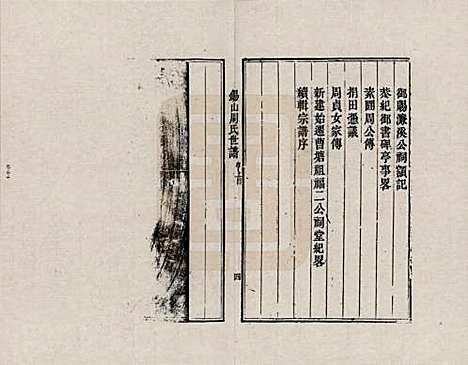 御賜濂溪公祠額記
恭紀御書碑亭事畧
素圃周公傳
捐田憑議
周貞女家傳
新建始遷曹塘祖福二公祠堂紀畧
續輯宗譜序
錫山周氏世譜
四